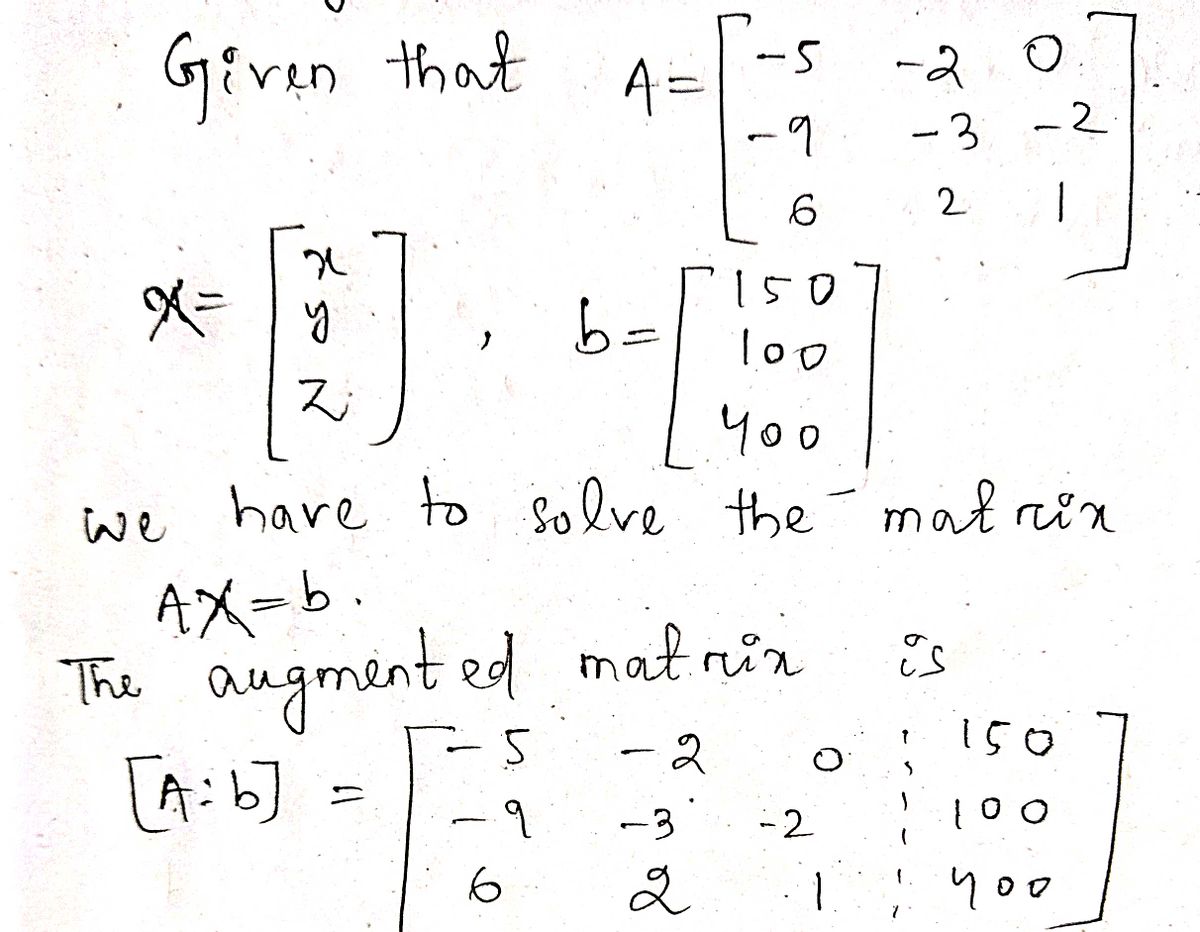 Given that A = [ -5 -2 0
-9 -3 -2
6 2 1 ]
X = [ x
y
z ] , b = [ 150
100
400 ]
we have to solve the matrix
AX = b .
The augmented matrix is
[A:b] = [ -5 -2 0 ⋮ 150
-9 -3 -2 ⋮ 100
6 2 1 ⋮ 400 ]